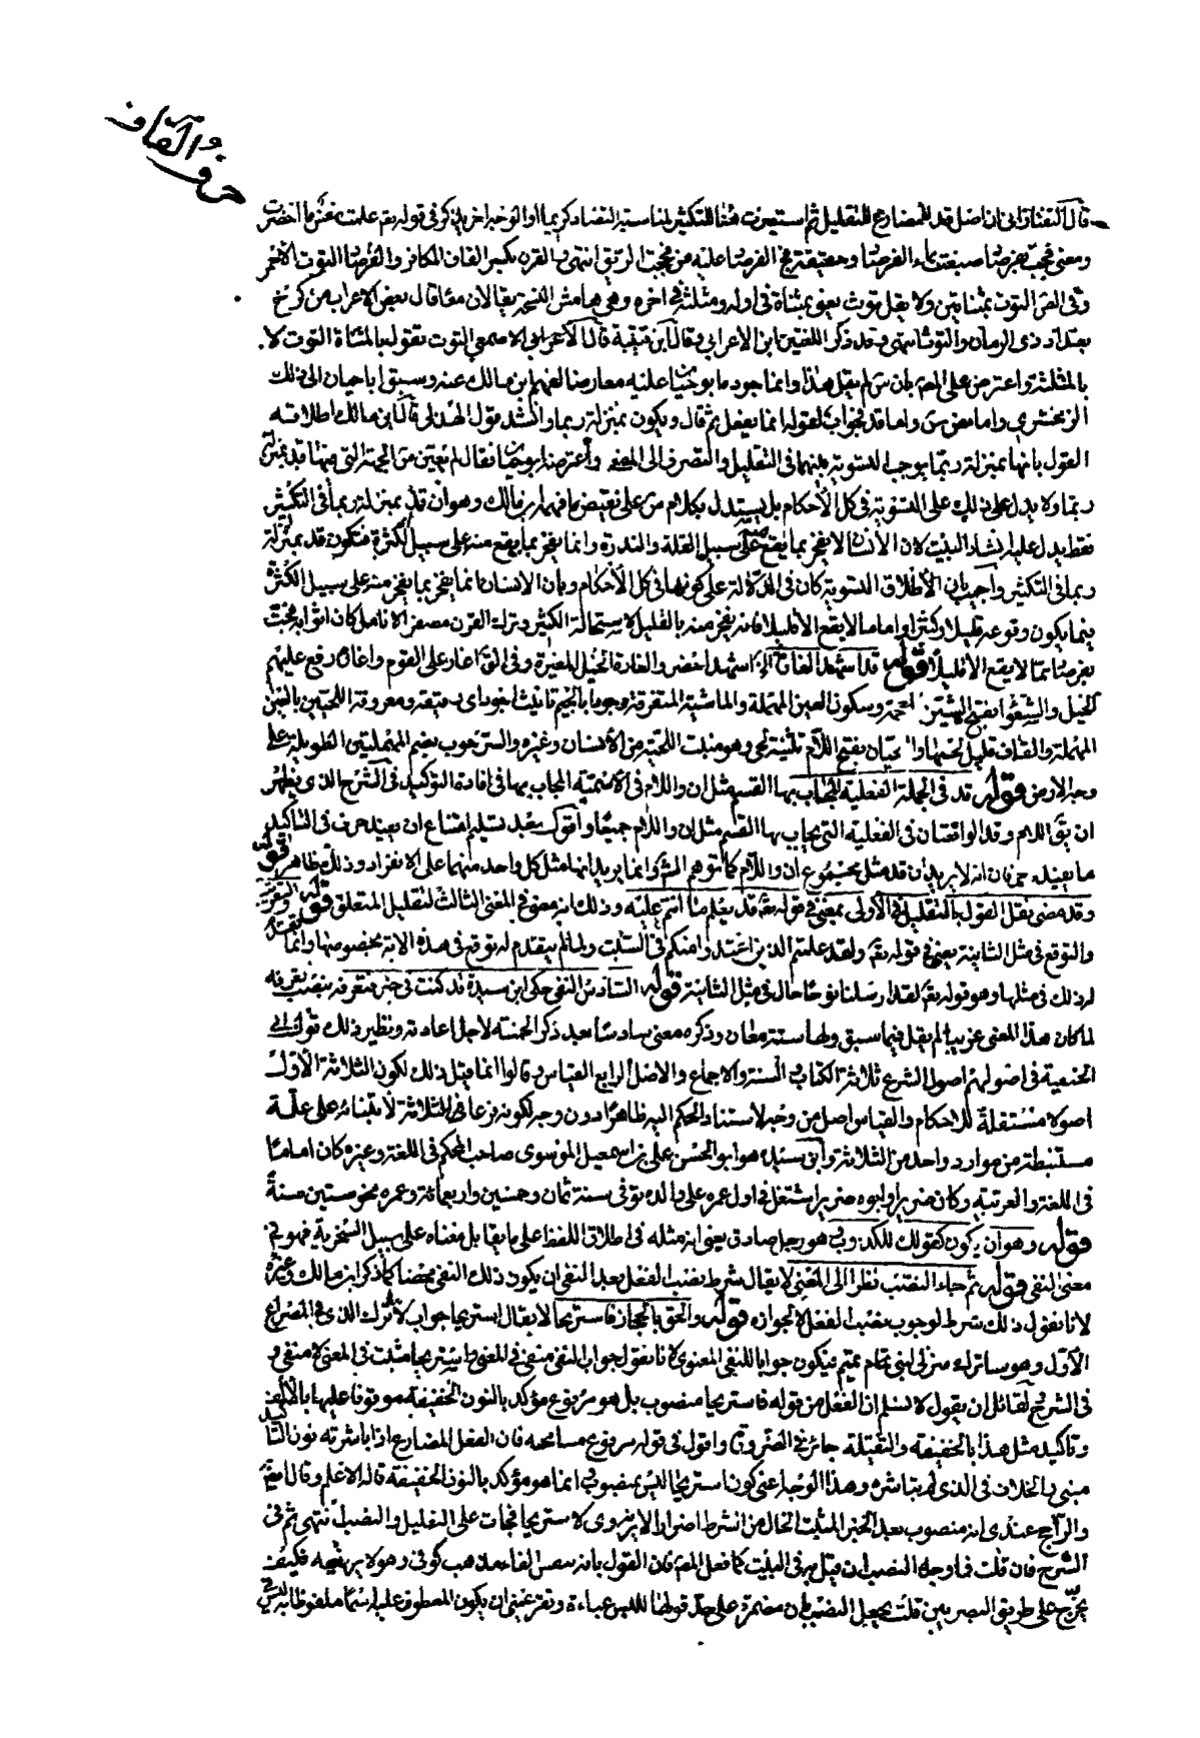 حرف القاف
قال التفتازاني ان اصل قد للمضارع للتقليل ثم استعيرت هنا للتكثير لمناسبة التضاد
ومعنى مجت بفرصاد صبغت بماء الفرصاد وحقيقته مج الفرصاد عليه من مججت الريق انتهى القرن بكسر القاف المكافئ والفرصاد التوت الاحمر
التوت بمثناتين ولا يقل توث يعني بمثناة في اوله ومثلثة في اخره وهي هامش
بغداد ذي الرمان والتوث انتهى وقد ذكر اللغتين ابن الاعرابي وقال ابن قتيبة قال الاصمعي التوت تقوله بالمثناة التوت لا
بالمثلثة واعترض على المص بان س لم يقل هذا وانما جود ما بو حيان عليه معارضا لفهم ابن مالك عنه وسبق اباحيان الى ذلك
الزمخشري واما نص س واما قد فجواب لقوله لما يفعل ثم قال ويكون بمنزلة ربما وانشد قول الهذلي قال ابن مالك اطلاقه
القول بانها بمنزلة ربما يوجب التسوية بينهما في التقليل والصرف الى المضي واعترضه ابو حيان فقال لم يبين من الجهة التي فيها قد بمنزلة
ربما ولا يدل على ذلك على التسوية في كل الاحكام بل يستدل بكلام س على نقيض ما فهمه ابن مالك وهو ان قد بمنزلة ربما في التكثير
فقط يدل عليه انشاد البيت لان الانسان لا يفخر بما يقع منه على سبيل القلة والندرة وانما يفخر بما يقع منه على سبيل الكثرة فتكون قد بمنزلة
ربما في التكثير واجيب بان الاطلاق التسوية كاف في الدلالة على كونها في كل الاحكام وبان الانسان انما يفخر بما يفخر منه على سبيل الكثرة
فيما يكون وقوعه قليلا وكثيرا واما ما لا يقع الا قليلا فانه يفخر منه بالقليل لاستحالة الكثير وترك القرن مصفر الانامل كان اثوابه مجت
بفرصاد مما لا يقع الا قليلا قوله قد اشهد الغارة الخ اشهد احضر والغارة الخيل المغيرة وفي اغار على القوم واغار رفع عليهم
الخيل والشعواء بفتح الشين المعجمة وسكون العين المهملة والماشية المتفرقة وجرداء بالجيم تانيث اجرد اي رقيقة ومعروقة اللحيين بالعين
المهملة والقاف قليل لحمها واللحيان بفتح اللام تثنية لحى وهو منبت اللحية من الانسان وغيره والسرحوب بضم المهملتين الطويلة على
وجه الارض قوله قد في الجملة الفعلية المجاب بها القسم مثل ان واللام في الاسمية المجاب بها في افادة التوكيد في الشرح الذي يظهر
ان يقال اللام وقد الواقعتان في الفعلية التي يجاب بها القسم مثل ان واللام جميعا واقول بعد تسليم امتناع ان يعيد حرف في التاكيد
ما يفيده حرفان انه لا يريد ان قد مثل مجموع ان واللام كما توهم الشر وانما يريد انها مثل كل واحد منهما على الانفراد وذلك ظاهر قوله
وقد مضى نقل القول بالتقليل في الاولى يعني في قوله تعالى قد يعلم ما انتم عليه وذلك انه معنى في المعنى الثالث لتقليل المتعلق قوله والتقريب
والتوقع في مثل الثانية يعني في قوله تعالى ولقد علمتم الذين اعتدوا منكم في السبت ولما لم يتقدم له توقع في هذه الاية بخصوصها وانما تقدم
له ذلك في مثلها وهو قوله تعالى لقد ارسلنا نوحا قال في مثل الثانية قوله السادس النفي حكى ابن سيدة قد كنت في خير فتعرفه بنصب تعرفه
لما كان هذا المعنى غريبا لم يقل فيما سبق ولها ستة معان وذكره معنى سادسا بعد ذكر الخمسة لاجل اعادته ونظير ذلك قول
الحنفية في اصولهم اصول الشرع ثلاثة الكتاب والسنة والاجماع والاصل الرابع القياس وقالوا انما قيل ذلك لكون الثلاثة الاول
اصولا مستقلة للاحكام والقياس اصل من وجه لاستناد الحكم اليه ظاهرا دون وجه لكونه فرعا للثلاثة لابتنائه على علة
مستنبطة من موارد واحد من الثلاثة وابن سيده هو ابو الحسن علي بن اسمعيل الموسوي صاحب المحكم في اللغة وغيره كان اماما
في اللغة والعربية وكان ضريرا وابوه ضريرا اشتغل في اول عمره على والده توفى سنة ثمان وخمسين واربعمائة وعمره نحو ستين سنة
قوله وهو ان يكون كقولك للكذوب هو رجل صادق يعني انه مثله في اطلاق اللفظ على ما يقابل معناه على سبيل السخرية فهو في
معنى النفي قوله ثم جاء النصب نظرا الى المعنى لا يقال شرط نصب الفعل بعد النفي ان يكون ذلك النفي محضا كما ذكر ابن مالك وغيره
لانا نقول ذلك شرط لوجوب نصب الفعل لا لجوازه قوله والحق بالحجاز فاستريحا لا يقال استريحا جواب لاترك الذي في المصراع
الاول وهو ساترك منزلي لبني تميم فيكون جوابا للنفي المعنوي لانا نقول جواب النفي منفي في المعنى واستريحا مثبت في المعنى لا منفي و
في الشرح لقائل ان يقول لا نسلم ان الفعل من قوله فاستريحا منصوب بل هو مرفوع مؤكد بالنون الخفيفة موقوفا عليها بالالف
وتاكيد مثل هذا بالخفيفة والثقيلة جائز في الضرورة واقول في قوله مرفوع مسامحة فان الفعل المضارع اذا باشرته نون التاكيد
مبني والخلاف في الذي لم تباشره وهذا الوجه اعني كون استريحا ليس بمنصوب انما هو مؤكد بالنون الخفيفة قاله الاعلم وقال
والراجح عندي انه منصوب بعد الخبر المثبت الخالي من الشرط اضرارا لا يروى لاستريحا فجات على التعليل والنصب انتهى ثم في
الشرح فان قلت فما وجه النصب ان قيل به في البيت كما فعل المص فان القول بانه بنفس الفاء مذهب كوفي وهو لا يرتضيه فكيف
يخرج على طريق البصريين قلت يجعل النصب بان مضمرة على حد قولها للبس عباءة وتقر عيني ان يكون المعطوف عليه اسما ملفوظا به ليس